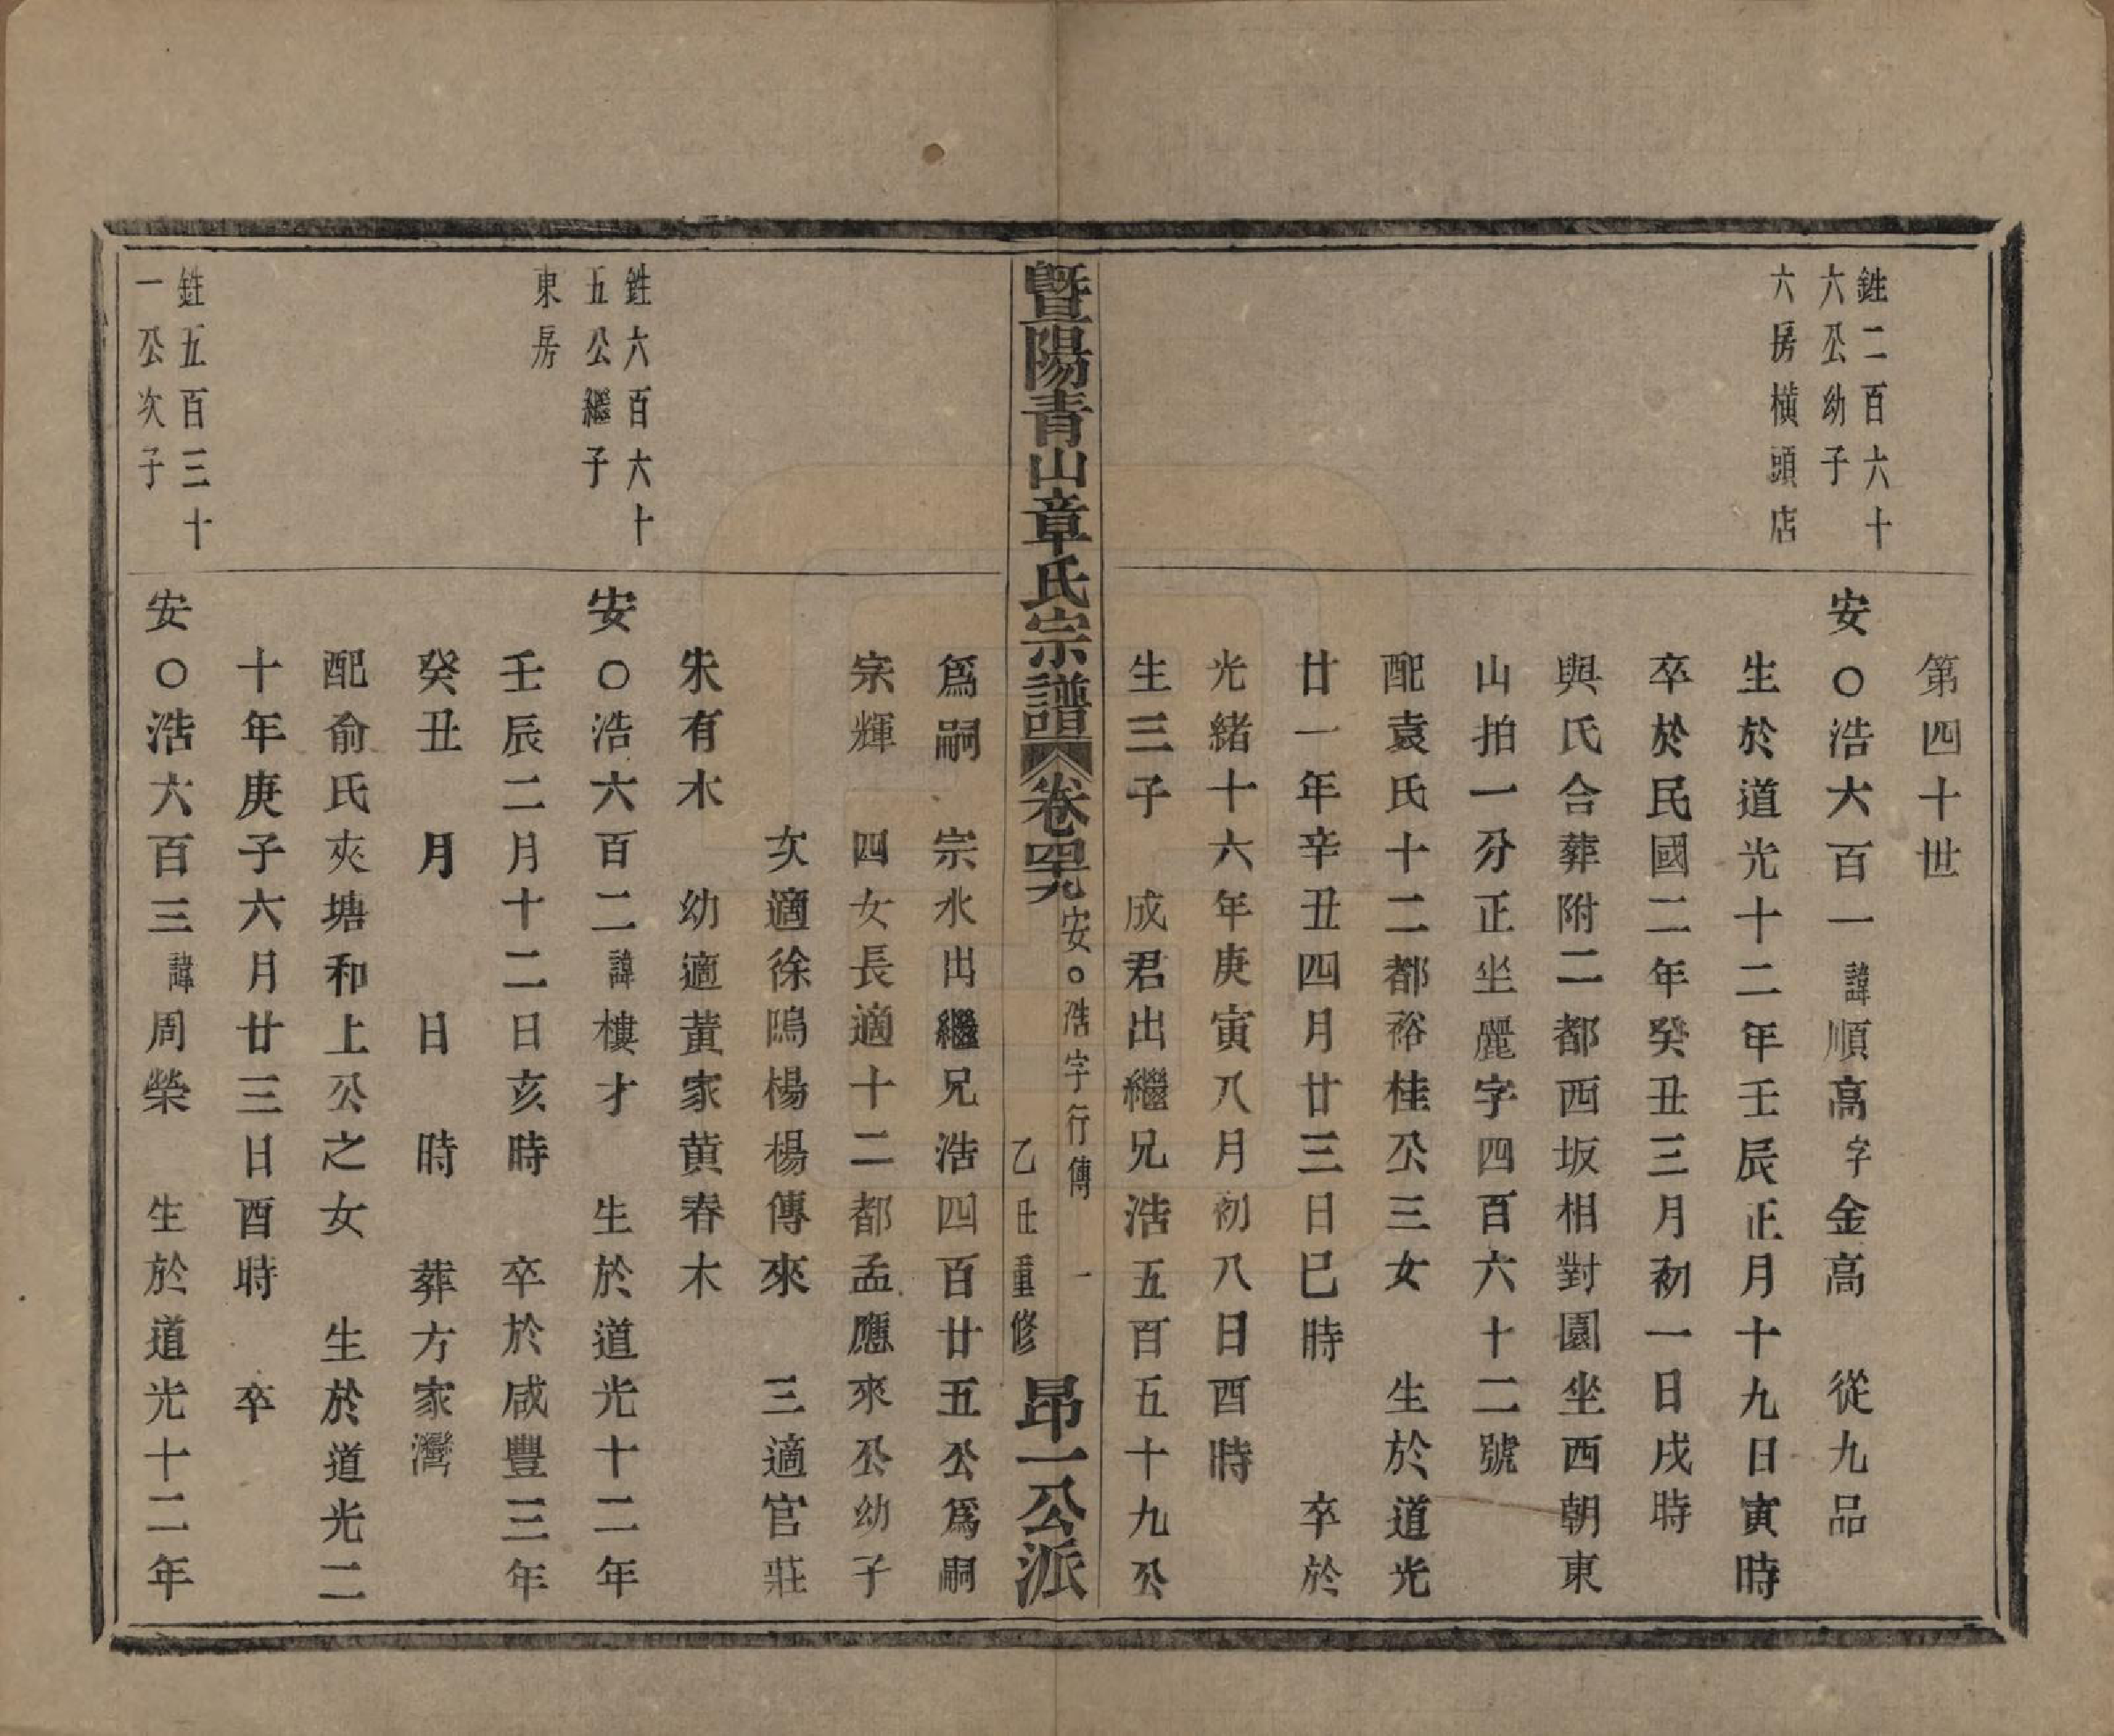 第四十世
鉎二百六十
六公幼子
六房橫頭店
安○浩六百一諱順高字金高 從九品
生於道光十二年壬辰正月十九日寅時
卒於民國二年癸丑三月初一日戌時
與氏合葬附二都西坂相對園坐西朝東
山拍一分正坐麗字四百六十二號
配袁氏十二都裕桂公三女 生於道光
廿一年辛丑四月廿三日巳時 卒於
光緒十六年庚寅八月初八日酉時
生三子 成君出繼兄浩五百五十九公
暨陽青山章氏宗譜 卷四九 安○浩字行傳 一 乙丑重修 昂一公派
爲嗣 宗水出繼兄浩四百廿五公爲嗣
宗輝 四女長適十二都孟應來公幼子
次適徐鴎楊楊傳來 三適官莊
朱有木 幼適黃家黃春木
鉎六百六十
五公繼子
東房
安○浩六百二諱樓才 生於道光十二年
壬辰二月十二日亥時 卒於咸豐三年
癸丑 月 日 時 葬方家灣
配俞氏夾塘和上公之女 生於道光二
十年庚子六月廿三日酉時 卒
鉎五百三十
一公次子
安○浩六百三諱周榮 生於道光十二年